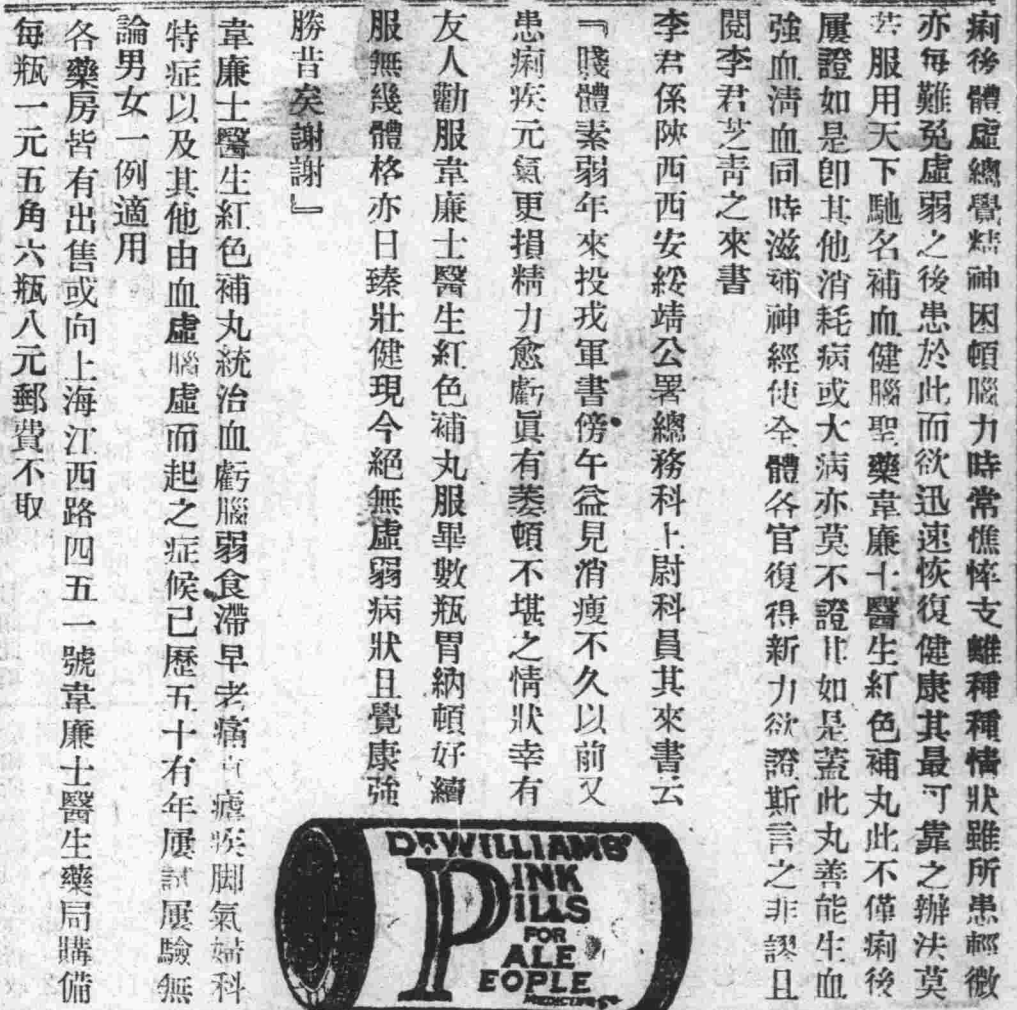 痢後體虛總覺精神困頓腦力時常憔悴支離種種情狀雖所患輕微
亦每難免虛弱之後患於此而欲迅速恢復健康其最可靠之辦法莫
若服用天下馳名補血健腦聖藥韋廉士醫生紅色補丸此不僅痢後
屢證如是卽其他消耗病或大病亦莫不證其如是蓋此丸善能生血
強血淸血同時滋補神經使全體各官復得新力欲證斯言之非謬且
閱李君芝靑之來書
李君係陝西西安綏靖公署總務科上尉科員其來書云
『賤體素弱年來投戎軍書傍午益見消瘦不久以前又
患痢疾元氣更損精力愈虧眞有萎頓不堪之情狀幸有
友人勸服韋廉士醫生紅色補丸服畢數瓶胃納頓好續
服無幾體格亦日臻壯健現今絕無虛弱病狀且覺康強
勝昔矣謝謝』
韋廉士醫生紅色補丸統治血虧腦弱食滯早老痛 瘧疾脚氣婦科
特症以及其他由血虛腦虛而起之症候已歷五十有年屢試屢驗無
論男女一例適用
各藥房皆有出售或向上海江西路四五一號韋廉士醫生藥局購備
每瓶一元五角六瓶八元郵費不取
DR WILLIAMS'
PINK
PILLS
FOR
PALE
PEOPLE